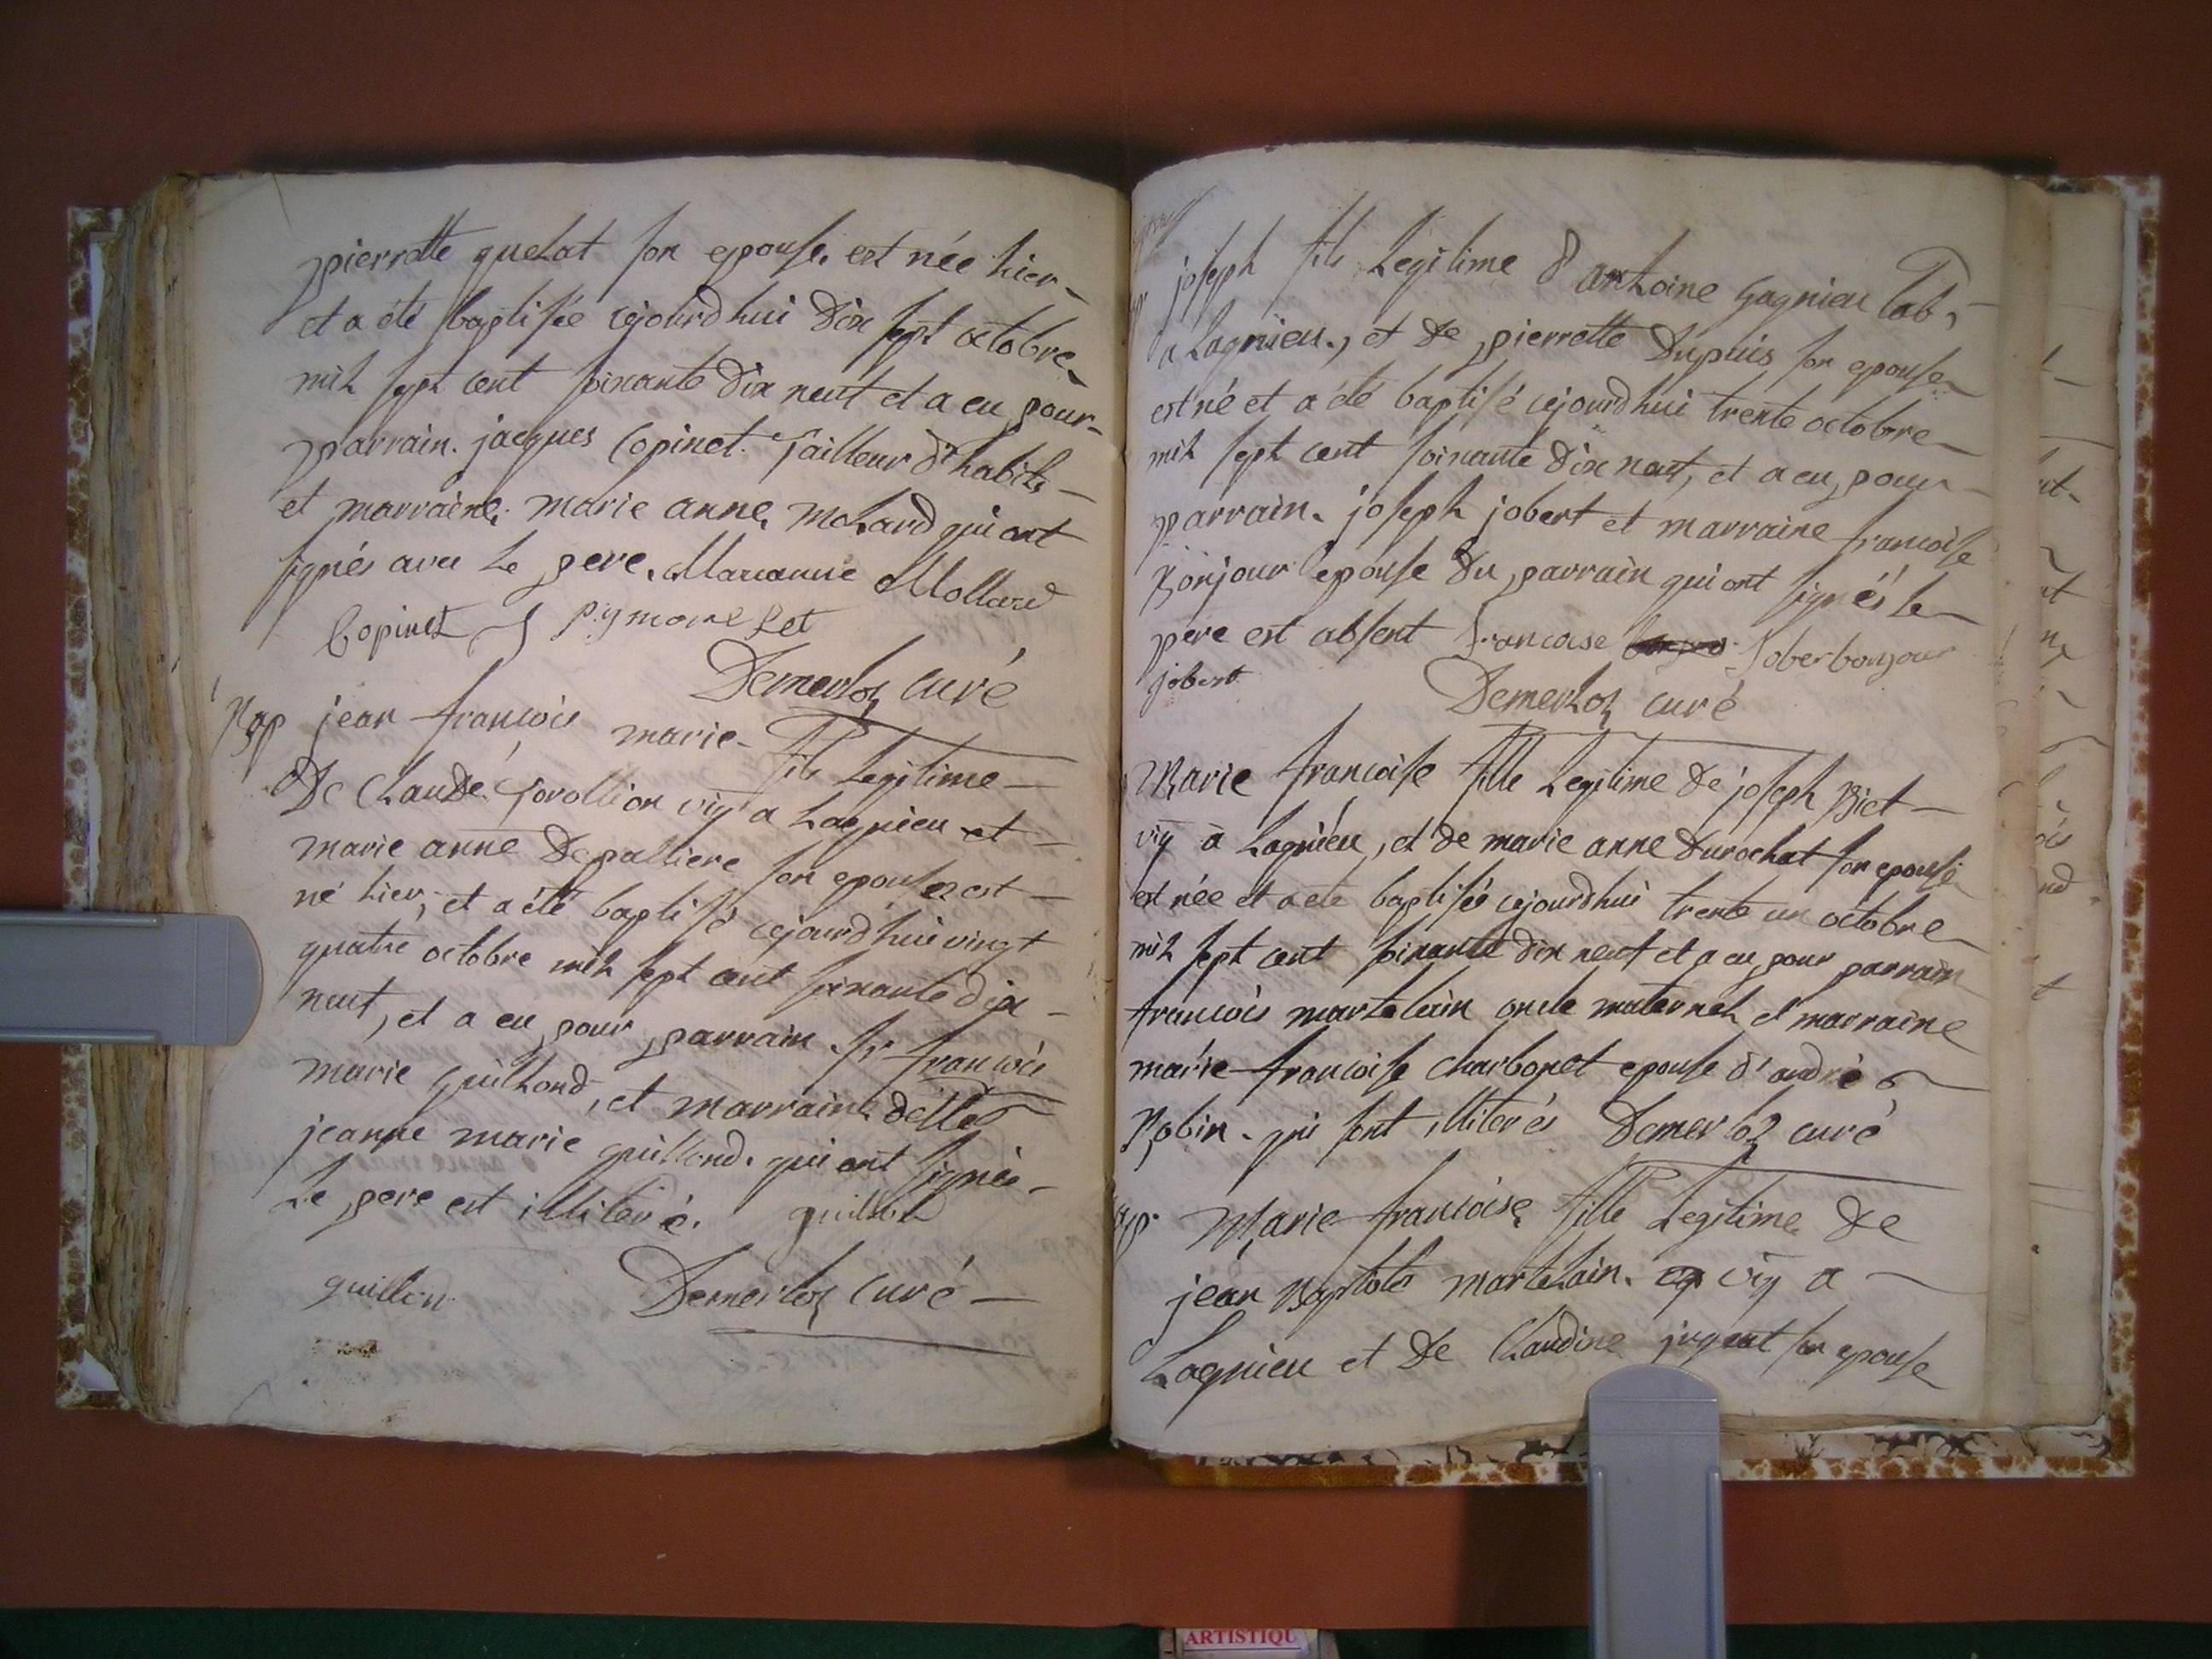 pierrette quelat son epouse est née hier
et a été baptisée cejourdhui dix sept octobre
mil sept cent soixante dix neuf et a eu pour
parrain jacques Copinet Tailleur d'habits
et marraine marie anne molard qui ont
signés avec le pere. Marianne Mollard
Copinet
Demerloz curé
Bap jean françois marie fils Legitime
De Claude vig a Lagnieu et
marie anne Depalliere son epouse est
né hier, et a été baptisé cejourdhui vingt
quatre octobre mil sept cent soixante dix
neuf, et a eu pour parrain sr françois
marie guillond, et marraine delle
jeanne marie guillond qui ont signés
Le pere est illiteré. guillond
guillon Demerloz curé
joseph fils Legitime d'antoine gagnieu Lab.
a Lagnieu, et de pierrette Dupuis son epouse
est né et a été baptisé cejourdhui trente octobre
mil sept cent soixante dix neuf, et a eu pour
parrain joseph jobert et marraine francoise
Bonjour epouse du parrain qui ont signés le
pere est absent francoise joberbonjour
jobert Demerloz curé
Marie francoise fille Legitime de joseph Biet
vig à Lagnieu, et de marie anne Durochat son epouse
est née et a eté baptisée cejourdhui trente un octobre
mil sept cent soixante dix neuf et a eu pour parrain
francois martelain oncle maternel et marraine
marie francoise charbonet epouse d'andré
Robin qui sont illiterés Demerloz curé
Bap Marie francoise fille Legitime de
jean Baptiste martelain vig a
Lagnieu et de Claudine jugeat son epouse
ARTISTIQU